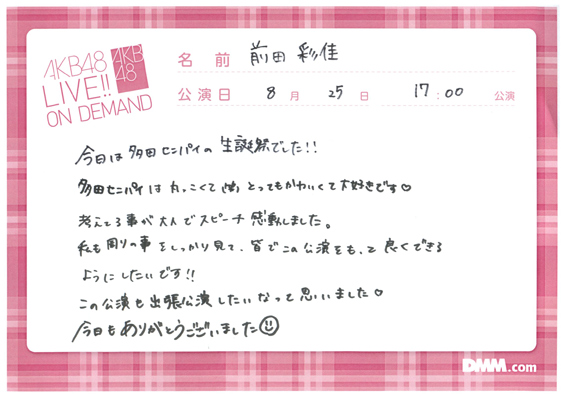 AKB48
LIVE!!
ON DEMAND
AKB
48
名前 前田 彩佳
公演日 8月 25日 17:00 公演
今日は多田センパイの生誕祭でした!!
多田センパイは丸っこくて(笑)とってもかわいくて大好きです♡
考えてる事が大人でスピーチ感動しました。
私も周りの事をしっかり見て、皆でこの公演をもっと良くできる
ようにしたいです!!
この公演も出張公演したいなって思いました♡
今日もありがとうございました☺
DMM.com